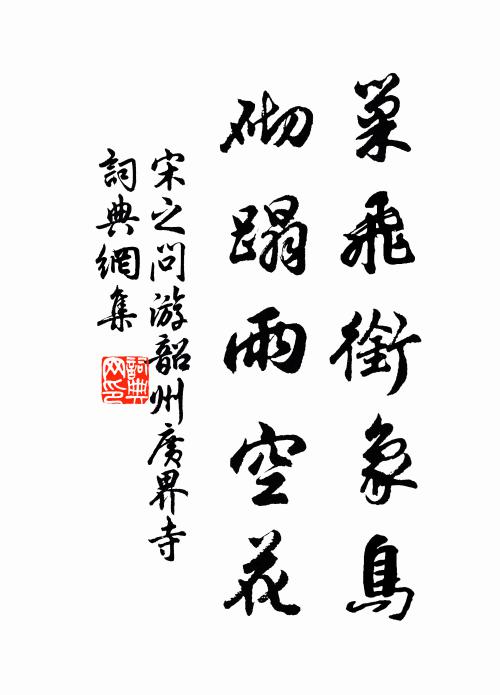 巢飛銜象鳥
砌蹋雨空花
宋之問游韶州廣界寺
詞典網集